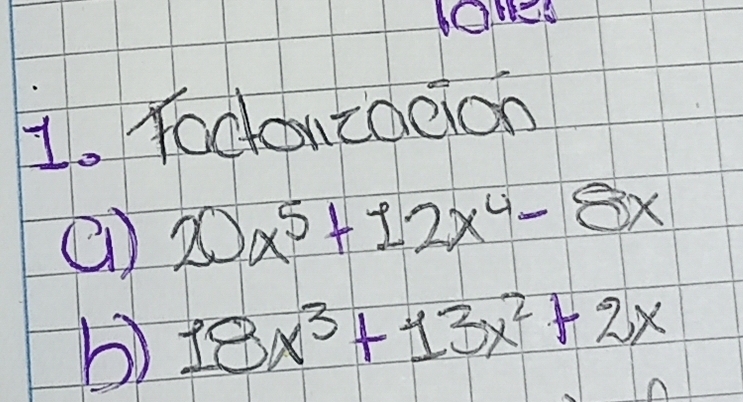 Taller
1. Factorización
a) 20x⁵ + 12x⁴ - 8x
b) 18x³ + 13x² + 2x